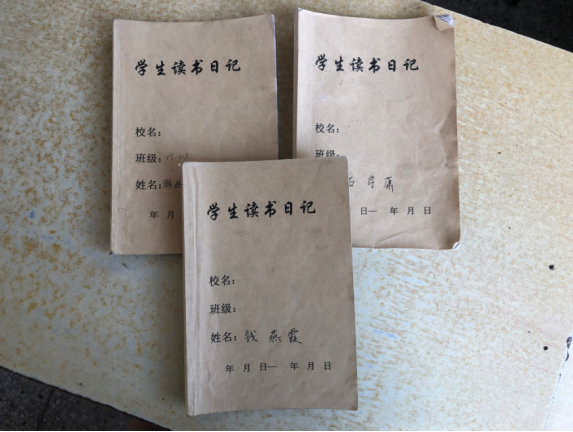 学生读书日记
校名:
班级:
姓名:
年 月
学生读书日记
校名:
班级:
日— 年 月 日
学生读书日记
校名:
班级:
姓名: 钱燕霞
年 月 日— 年 月 日